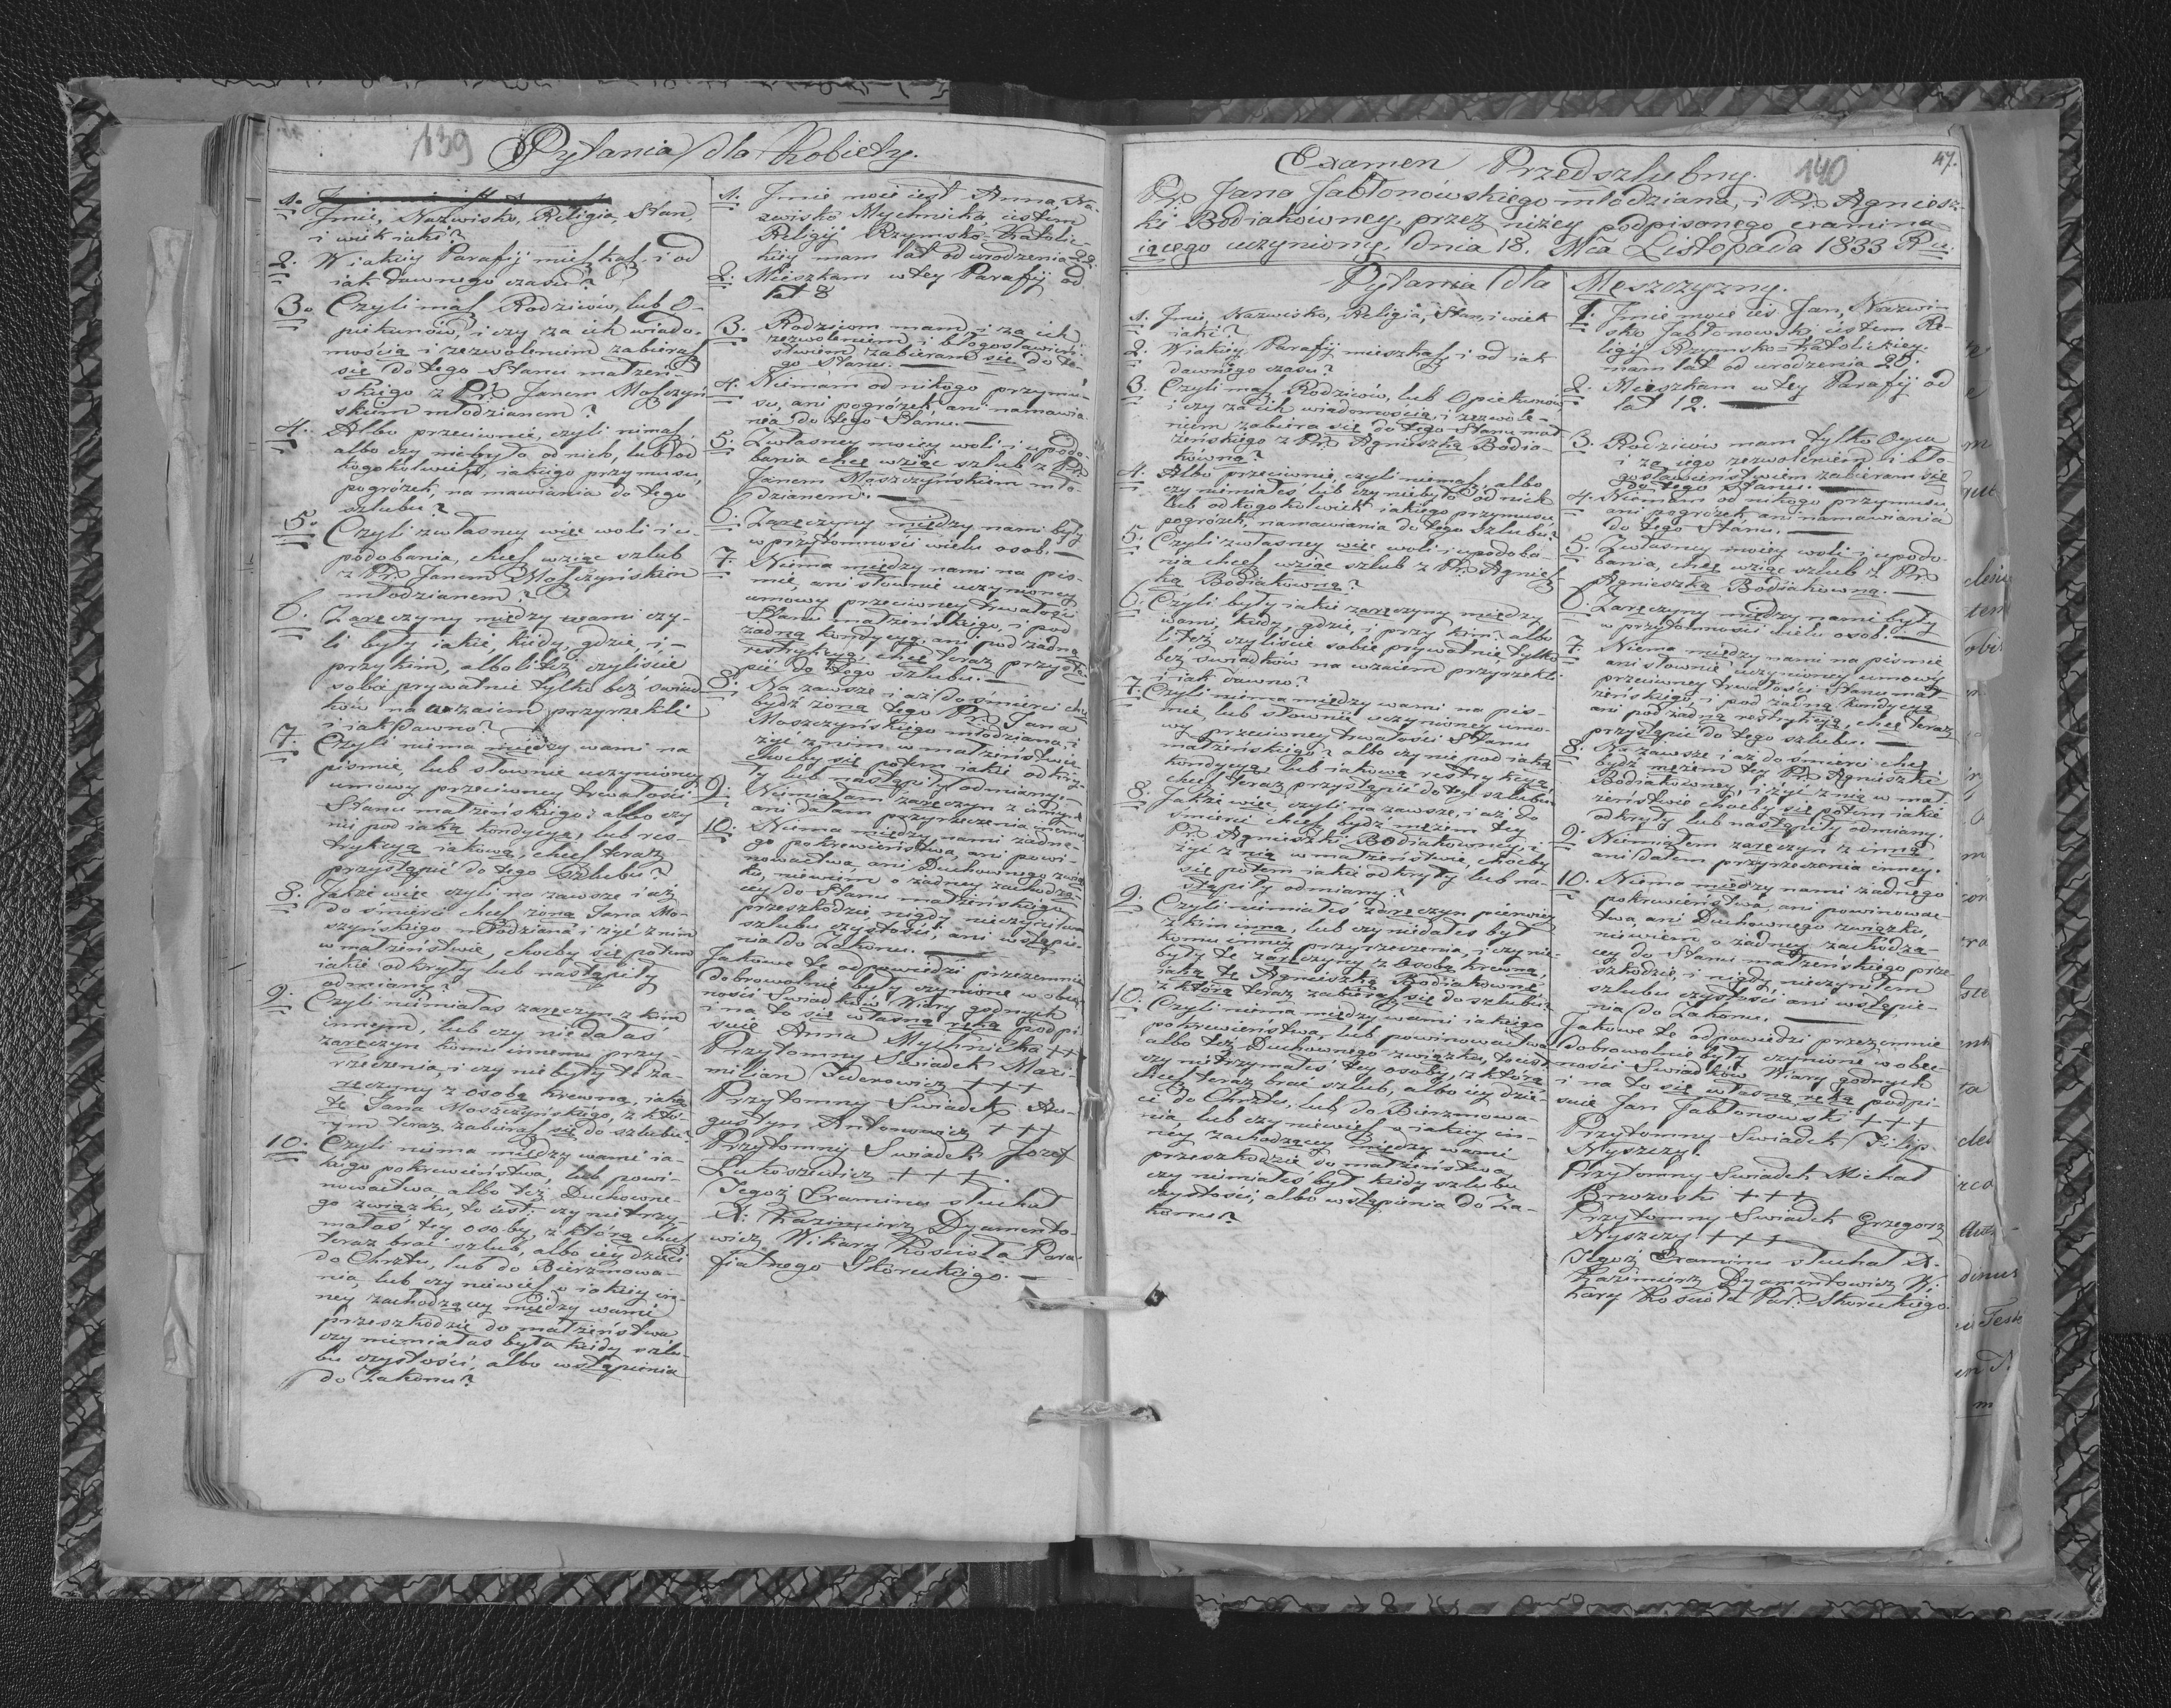 139
Pytania dla Kobiety.
1. Jmie, Nazwisko, Religia, Stan,
i wiek iaki?
2. W iakiey Parafij mieszkasz i od
iak dawnego czasu?
3. Czyli masz Rodziców, lub O-
piekunów, i czy za ich wiado-
mością i zezwoleniem zabierasz
się do tego Stanu małżeń-
skiego z Pr. Janem Moszczyń-
skim młodzianem?
4. Albo przeciwnie, czyli nimasz
albo czy niebyło od nich, lub od
kogokolwiek, iakiego przymusu,
pogrózek, namawiania do tego
szlubu?
5. Czyli zwłasney więc woli i u-
podobania, chcesz wziąc szlub
z Pr. Janem Moszczyńskim
młodzianem?
6. Zaręczyny między wami czy-
li były iakie, kiedy, gdzie, i
przy kim, albo liteż czyliście
sobie prywatnie tylko bez swiad-
ków na wzaiem przyrzekli
i iak dawno?
7. Czyli niema między wami na
pismie, lub słownie uczynioney
umowy przeciwney trwałości
Stanu małżeńskiego; albo czy
nie pod iaką kondycyą, lub res-
trykcyą iakową, chcesz teraz
przystąpić do tego szlubu?
8. Jakże więc czyli na zawsze i aż
do śmierci chcesz żoną Jana Mo-
szyńskiego młodziana i żyć z nim
w małżeństwie, chocby się potem
iakie odkryły lub nastąpiły
odmiany?
9. Czyli niemiałas zaręczyn z kim
innym, lub czy niedałas
zaręczyn komu innemu przy-
rzeczenia, i czy nie były te za-
ręczyny z osobą krewną, iaką
tę Jana Moszczyńskiego, z któ-
rym teraz zabierasz się do szlubu?
10. Czyli niema między wami ia-
kiego pokrewieństwa, lub powi-
nowactwa, albo też Duchowne-
go związku, to iest: czy nie trzy-
małaś tey osoby, z którą chcesz
teraz brać szlub, albo iey dzieci
do Chrztu, lub do Bierzmowa-
nia, lub czy niewiesz o iakiey in-
ney zachodzącey między wami
przeszkodzie do małżeństwa
czy niemiałas była kiedy szlu-
bu czystości, albo wstąpienia
do Zakonu?
1. Jmie moie iest Anna, Na-
zwisko Mychnicka, iestem
Religij Rzymsko-Katolic-
kiey mam lat od urodzenia 22.
2. Mieszkam w tey Parafij od
lat 8
3. Rodziców mam, i za ich
zezwoleniem i błogosławień-
stwem zabieram się do te-
go Stanu.
4. Niemam od nikogo przymu-
su, ani pogrózek, ani namawia-
nia do tego Stanu.
5. Zwłasney moiey woli i upodo-
bania chcę wziąc szlub z Pr.
Janem Moszczyńskim mło-
dzianem.
6. Zaręczyny między nami były
w przytomności wielu osob.
7. Niema między nami na pis-
mie, ani słownie uczynioney
umowy przeciwney trwałości
Stanu małżeńskiego, i pod
żadną kondycyą, ani pod żadną
restrykcyą, chcę teraz przystą-
pić do tego szlubu.
8. Na zawsze i aż do śmierci chcę
bydź żoną tego Pr. Jana
Moszczyńskiego młodziana, i
żyć z nim w małżeństwie
chocby się potem iakie odkry-
ły lub nastąpiły odmiany.
9. Niemiałam zaręczyn z innym
ani dałam przyrzeczenia innemu
10. Niema między nami żadne-
go pokrewieństwa, ani powi-
nowactwa, ani Duchownego związ-
ku, niewiem o żadney zachodzą-
cey do Stanu małżeńskiego
przeszkodzie, nigdy nieczyniłam
szlubu czystości, ani wstąpie-
nia do Zakonu.
Jakowe te odpowiedzi przezemnie
dobrowolnie były czynione w obec-
ności Swiadków Wiary godnych
i na to się własną ręką podpi-
suię Anna Mychnicka +++
Przytomny Swiadek Maxi-
milian Federowicz +++
Przytomny Swiadek Au-
gustyn Antonowicz +++
Przytomny Swiadek Jozef
Łukaszewicz +++.
Tegoż Examinu słuchał
X. Kazimierz Dyamento-
wicz Wikary Koscioła Para-
fialnego Skoreckiego.
47.
140
Examen Przedszlubny.
Pr. Jana Jabłonowskiego młodziana, i Pr. Agniesz-
ki Bodiakowney, przez niżey podpisanego examinu-
iącego uczyniony, Dnia 18. Mca Listopada 1833 Ru.
Pytania dla Męszczyzny.
1. Jmie, Nazwisko, Religia, Stan, i wiek
iaki?
2. W iakiey Parafij mieszkasz, i od iak
dawnego czasu?
3. Czyli masz Rodziców, lub Opiekunów
i czy za ich wiadomością, i zezwole-
niem zabiera się do tego Stanu mał-
żeńskiego z Pr. Agnieszką Bodia-
kowną?
4. Albo przeciwnie, czyli niemasz, albo
czy niemiałes lub czy niebyło od nich
lub od kogokolwiek iakiego przymusu,
pogrózek, namawiania do tego szlubu?
5. Czyli zwłasney więc woli i upodoba-
nia chcesz wziąc szlub z Pr. Agniesz-
ką Bodiakowną?
6. Czyli były iakie zaręczyny między
wami, kiedy, gdzie, i przy kim? albo
liteż czyliście sobie prywatnie, tylko
bez swiadków na wzaiem przyrzekli
i iak dawno?
7. Czyli niema między wami na pis-
mie, lub słownie uczynioney umo-
wy przeciwney trwałości Stanu
małżeńskiego? albo czy nie pod iaką
kondycyą, lub iakową restrykcyą,
chcesz teraz przystąpić do tego szlubu?
8. Jakże więc czyli na zawsze, i aż do
śmierci chcesz bydź mężem tey
Pr. Agnieszki Bodiakowney, i
żyć z nią w małżeństwie, chocby
się potem iakie odkryły lub na-
stąpiły odmiany?
9. Czyli niemiałeś zaręczyn pierwiey
z kim inną, lub czy nidałes był
komu inney przyrzeczenia, i czy nie-
były te zaręczyny z Osobą krewną,
iaką tę Agnieszką Bodiakowną
z którą teraz zabierasz się do szlubu?
10. Czyli niema między wami iakiego
pokrewieństwa, lub powinowactwa
albo też Duchownego związku, to iest
czy nie trzymałeś tey osoby, z którą
chcesz teraz brać szlub, albo iey dzie-
ci do Chrztu, lub do Bierzmowa-
nia, lub czy niewiesz o iakiey in-
ney zachodzącey między wami
przeszkodzie do małżeństwa
czy niemiałeś był kiedy szlubu
czystości, albo wstąpienia do Za-
konu?
1. Jmie moie ies Jan, Nazwi-
sko Jabłonowski, iestem Re-
ligij Rzymsko-Katolickiey.
mam lat od urodzenia 25.
2. Mieszkam w tey Parafij od
lat 12.
3. Rodziców mam tylko Oyca
i za iego zezwoleniem i bło-
gosławieństwiem zabieram się
do tego Stanu.
4. Niemam od nikogo przymusu,
ani pogrózek ani namawiania
do tego Stanu.
5. Zwłasney moiey woli i upodo-
bania, chcę wziąc szlub z Pr.
Agnieszką Bodiakowną.
6. Zaręczyny między nami były
w przytomności wielu osob.
7. Niema między nami na pismie
ani słownie uczynioney umowy
przeciwney trwałości Stanu mał-
żeńskiego, i pod żadną kondycyą
ani pod żadną restrykcyą, chcę teraz
przystąpić do tego szlubu.
8. Na zawsze i aż do śmierci chcę
bydź mężem tey Pr. Agnieszki
Bodiakowney, i żyć z nią w mał-
żeństwie chocby się potem iakie
odkryły lub nastąpiły odmiany.
9. Niemiałem zaręczyn z inną
ani dałem przyrzeczenia inney.
10. Niema między nami żadnego
pokrewieństwa, ani powinowac-
twa, ani Duchownego związku,
niewiem o żadney zachodzą-
cey do Stanu małżeńskiego prze-
szkodzie, i nigdy nieczyniłem
szlubu czystości ani wstąpie-
nia do Zakonu.
Jakowe te odpowiedzi przezemnie
dobrowolnie były czynione w obec-
ności Swiadków Wiary godnych
i na to się własną ręką podpi-
suie Jan Jabłonowski +++
Przytomny Swiadek Filip
Nyszczy.
Przytomny Swiadek Michał
Brzozoski +++
Przytomny Swiadek Grzegorz
Nyszczy +++
Tegoż Examinu słuchał X.
Kazimierz Dyamentowicz Wi-
kary Koscioła Par: Skoreckiego.